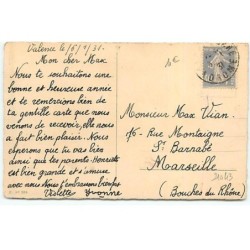 Valence le
Mon cher Max
Nous te souhaitons une
bonne et heureuse année
et te remercions bien de
ta gentille carte que nous
venons de recevoir, elle nous
a fait bien plaisir. Nous
esperons que tu vas bien
ainsi que tes parents. Henriette
est bien grande et s'amuse
avec nous. Nous t'embrassons bien
Violette Yvonne
10€
Monsieur Max Vian.
16 Rue Montaigne
St Barnabé
Marseille
(Bouches du Rhône)